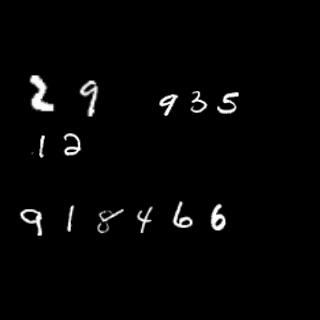 29 935
12
918466